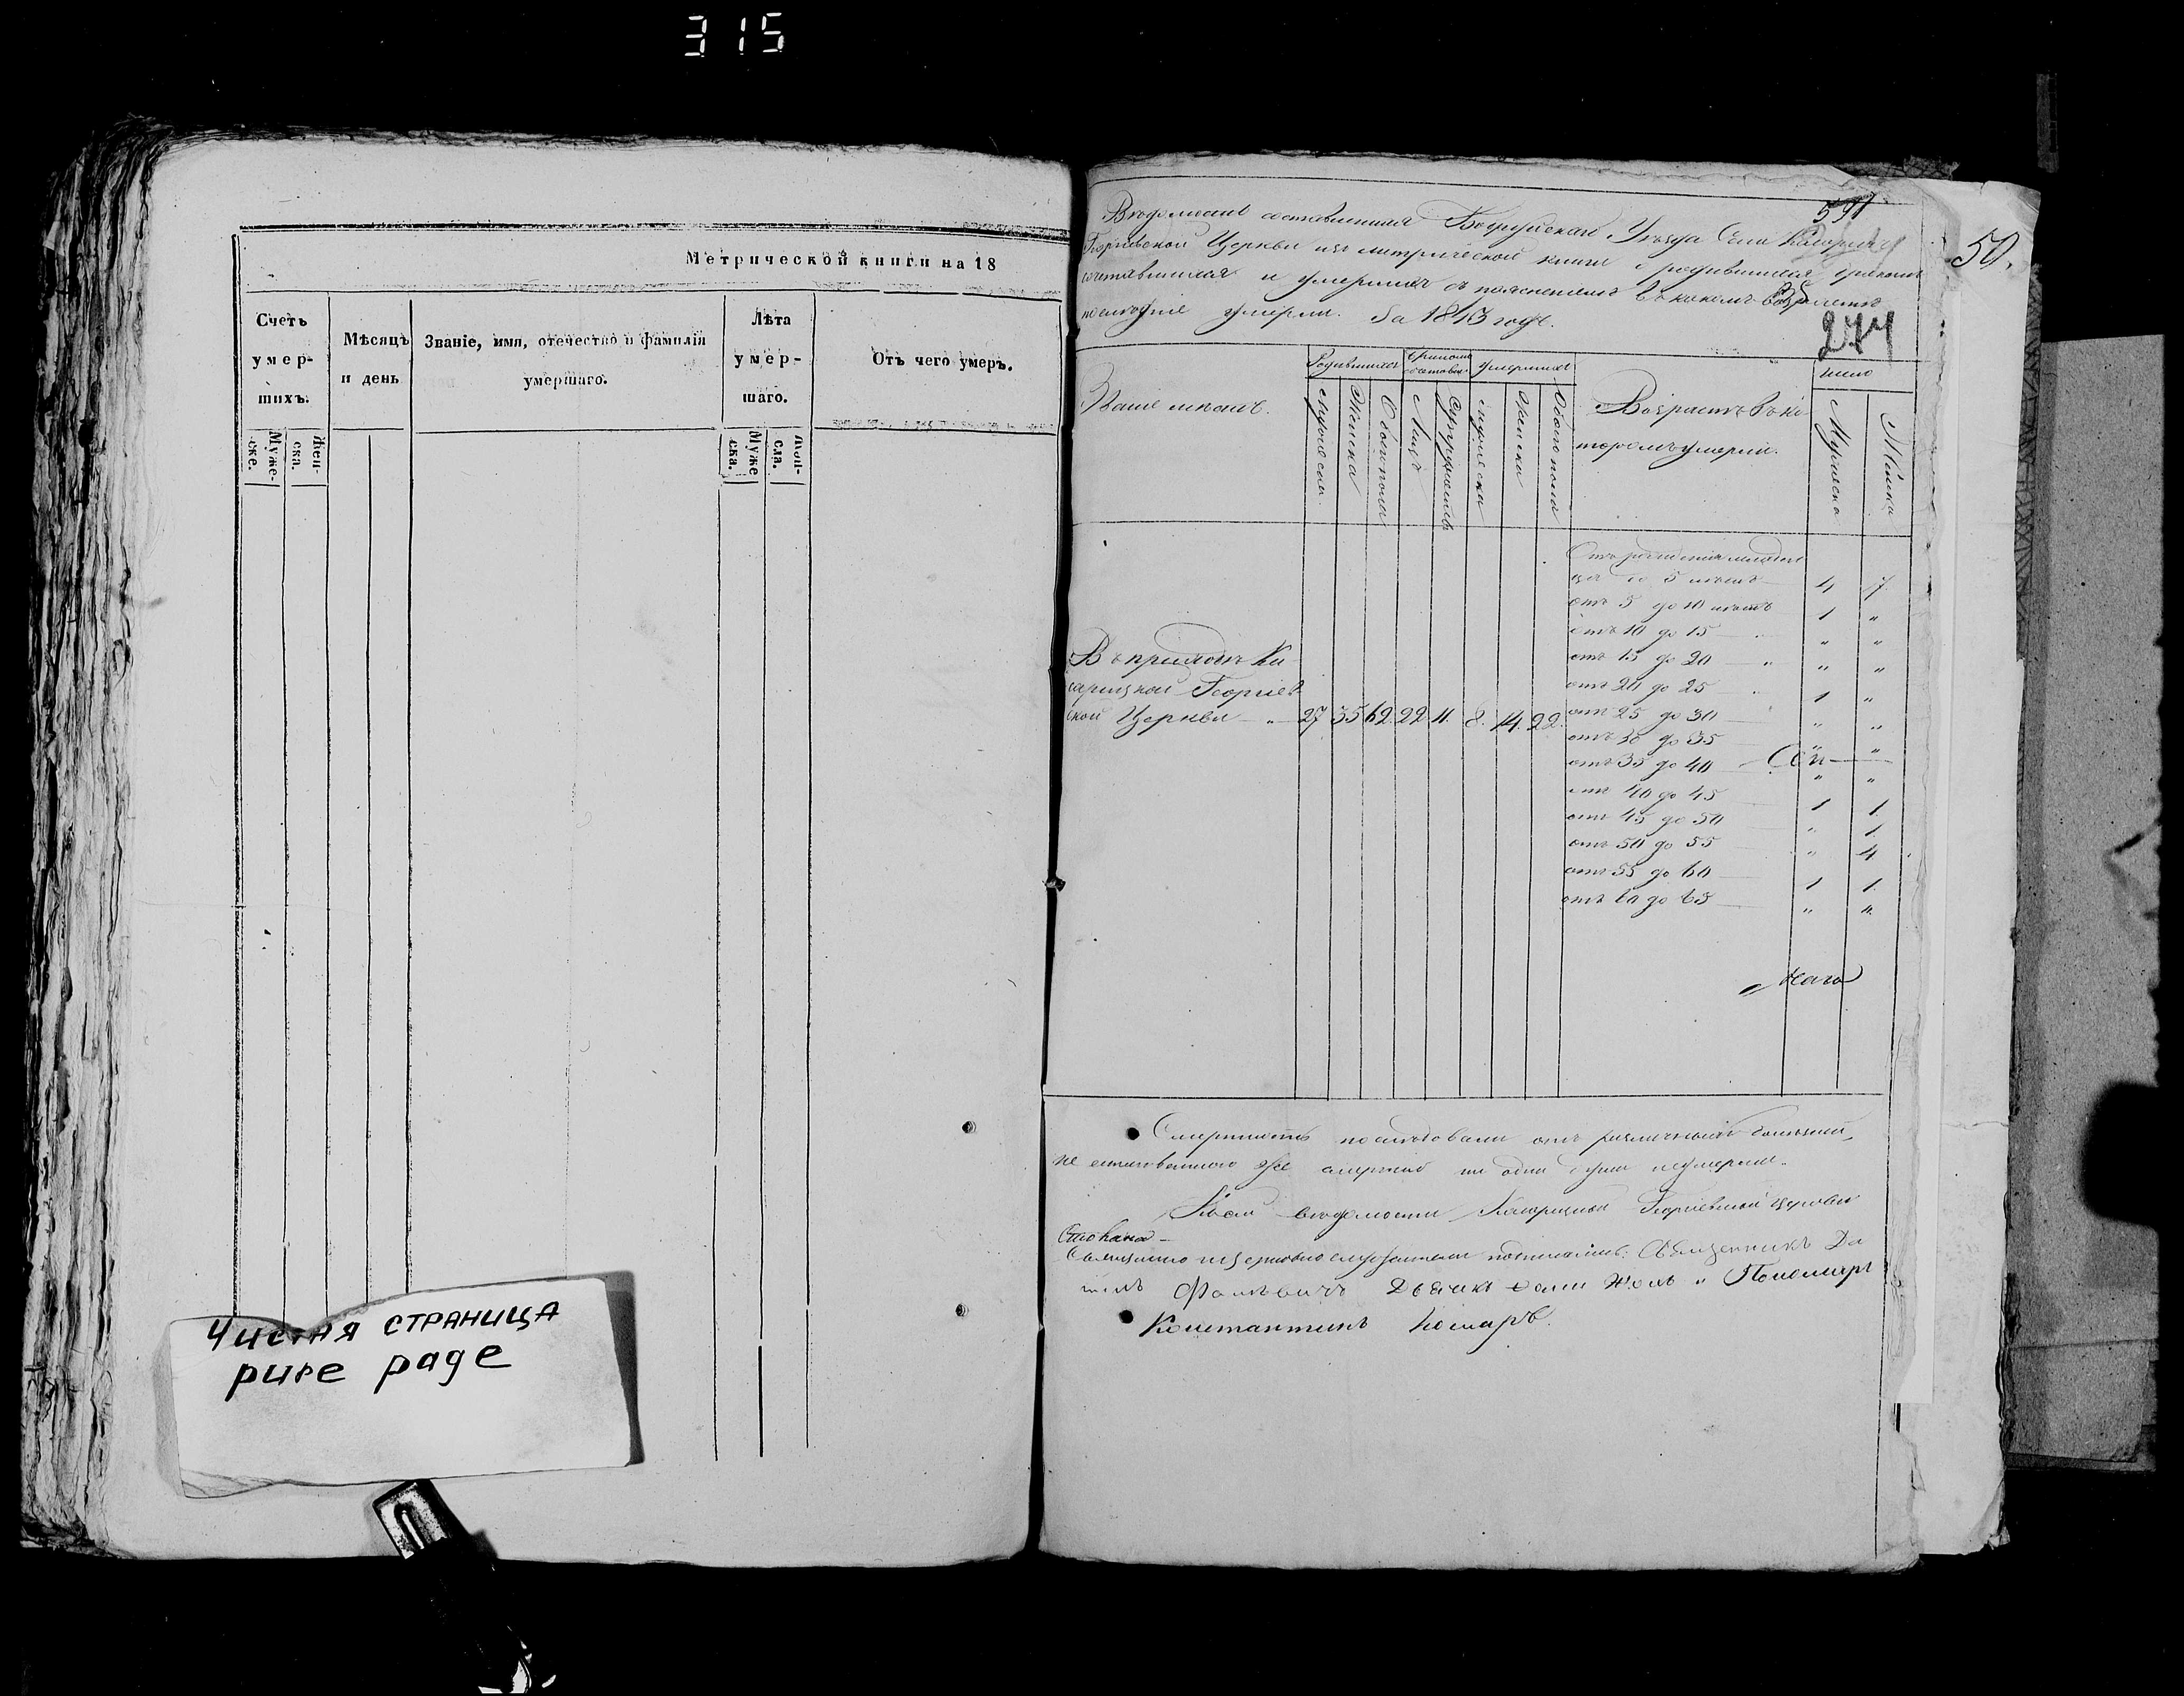 315
Метрической книги на 18
Счетъ умер-шихъ.
Мѣсяцъ и день
Званіе, имя, отечество и фамилія умершаго.
Лѣта умер-шаго.
Отъ чего умеръ.
Муже-ске.
Жен-ска.
Муже ска.
Чистая страница
pure page
591
50.
274
Вѣдомость составленная Бобруйскаго Уѣзда Села
Георгіевской Церкви изъ метрической книги о родившихся, бракомъ
сочетавшихся и умершихъ съ поясненіемъ въ какомъ возрастѣ
послѣдніе умерли. За 1843 годъ.
Званіе
Родившихся
Бракомъ
Умершихъ
Возрастъ въ ко
торомъ умерли.
Число
Мужеска
Женска
Обоего пола
Лицъ
Супружествъ
Мужеска
Женска
Обоего пола
Мужеска
Женска
Отъ рожденія
до 5 лѣтъ 4 7
отъ 5 до 10 лѣтъ 1 "
отъ 10 до 15 " "
отъ 15 до 20 " " "
отъ 20 до 25 1 "
отъ 25 до 30 " "
отъ 30 до 35 " "
отъ 35 до 40 " "
отъ 40 до 45 1 1
отъ 45 до 50 " 1
отъ 50 до 55 " 4
отъ 55 до 60 1 1
отъ 60 до 65 " "
Въ приходѣ Ка
Георгіев
ской Церкви " 27 35 62 22 11. 8. 14. 22.
Смертность послѣдовали отъ различныхъ болѣзней,
же смертію ни одни души не умерли.
Къ сей вѣдомости Георгіевской церкви
Священникъ
Дьячекъ Пономарь
Константинъ Комаръ.